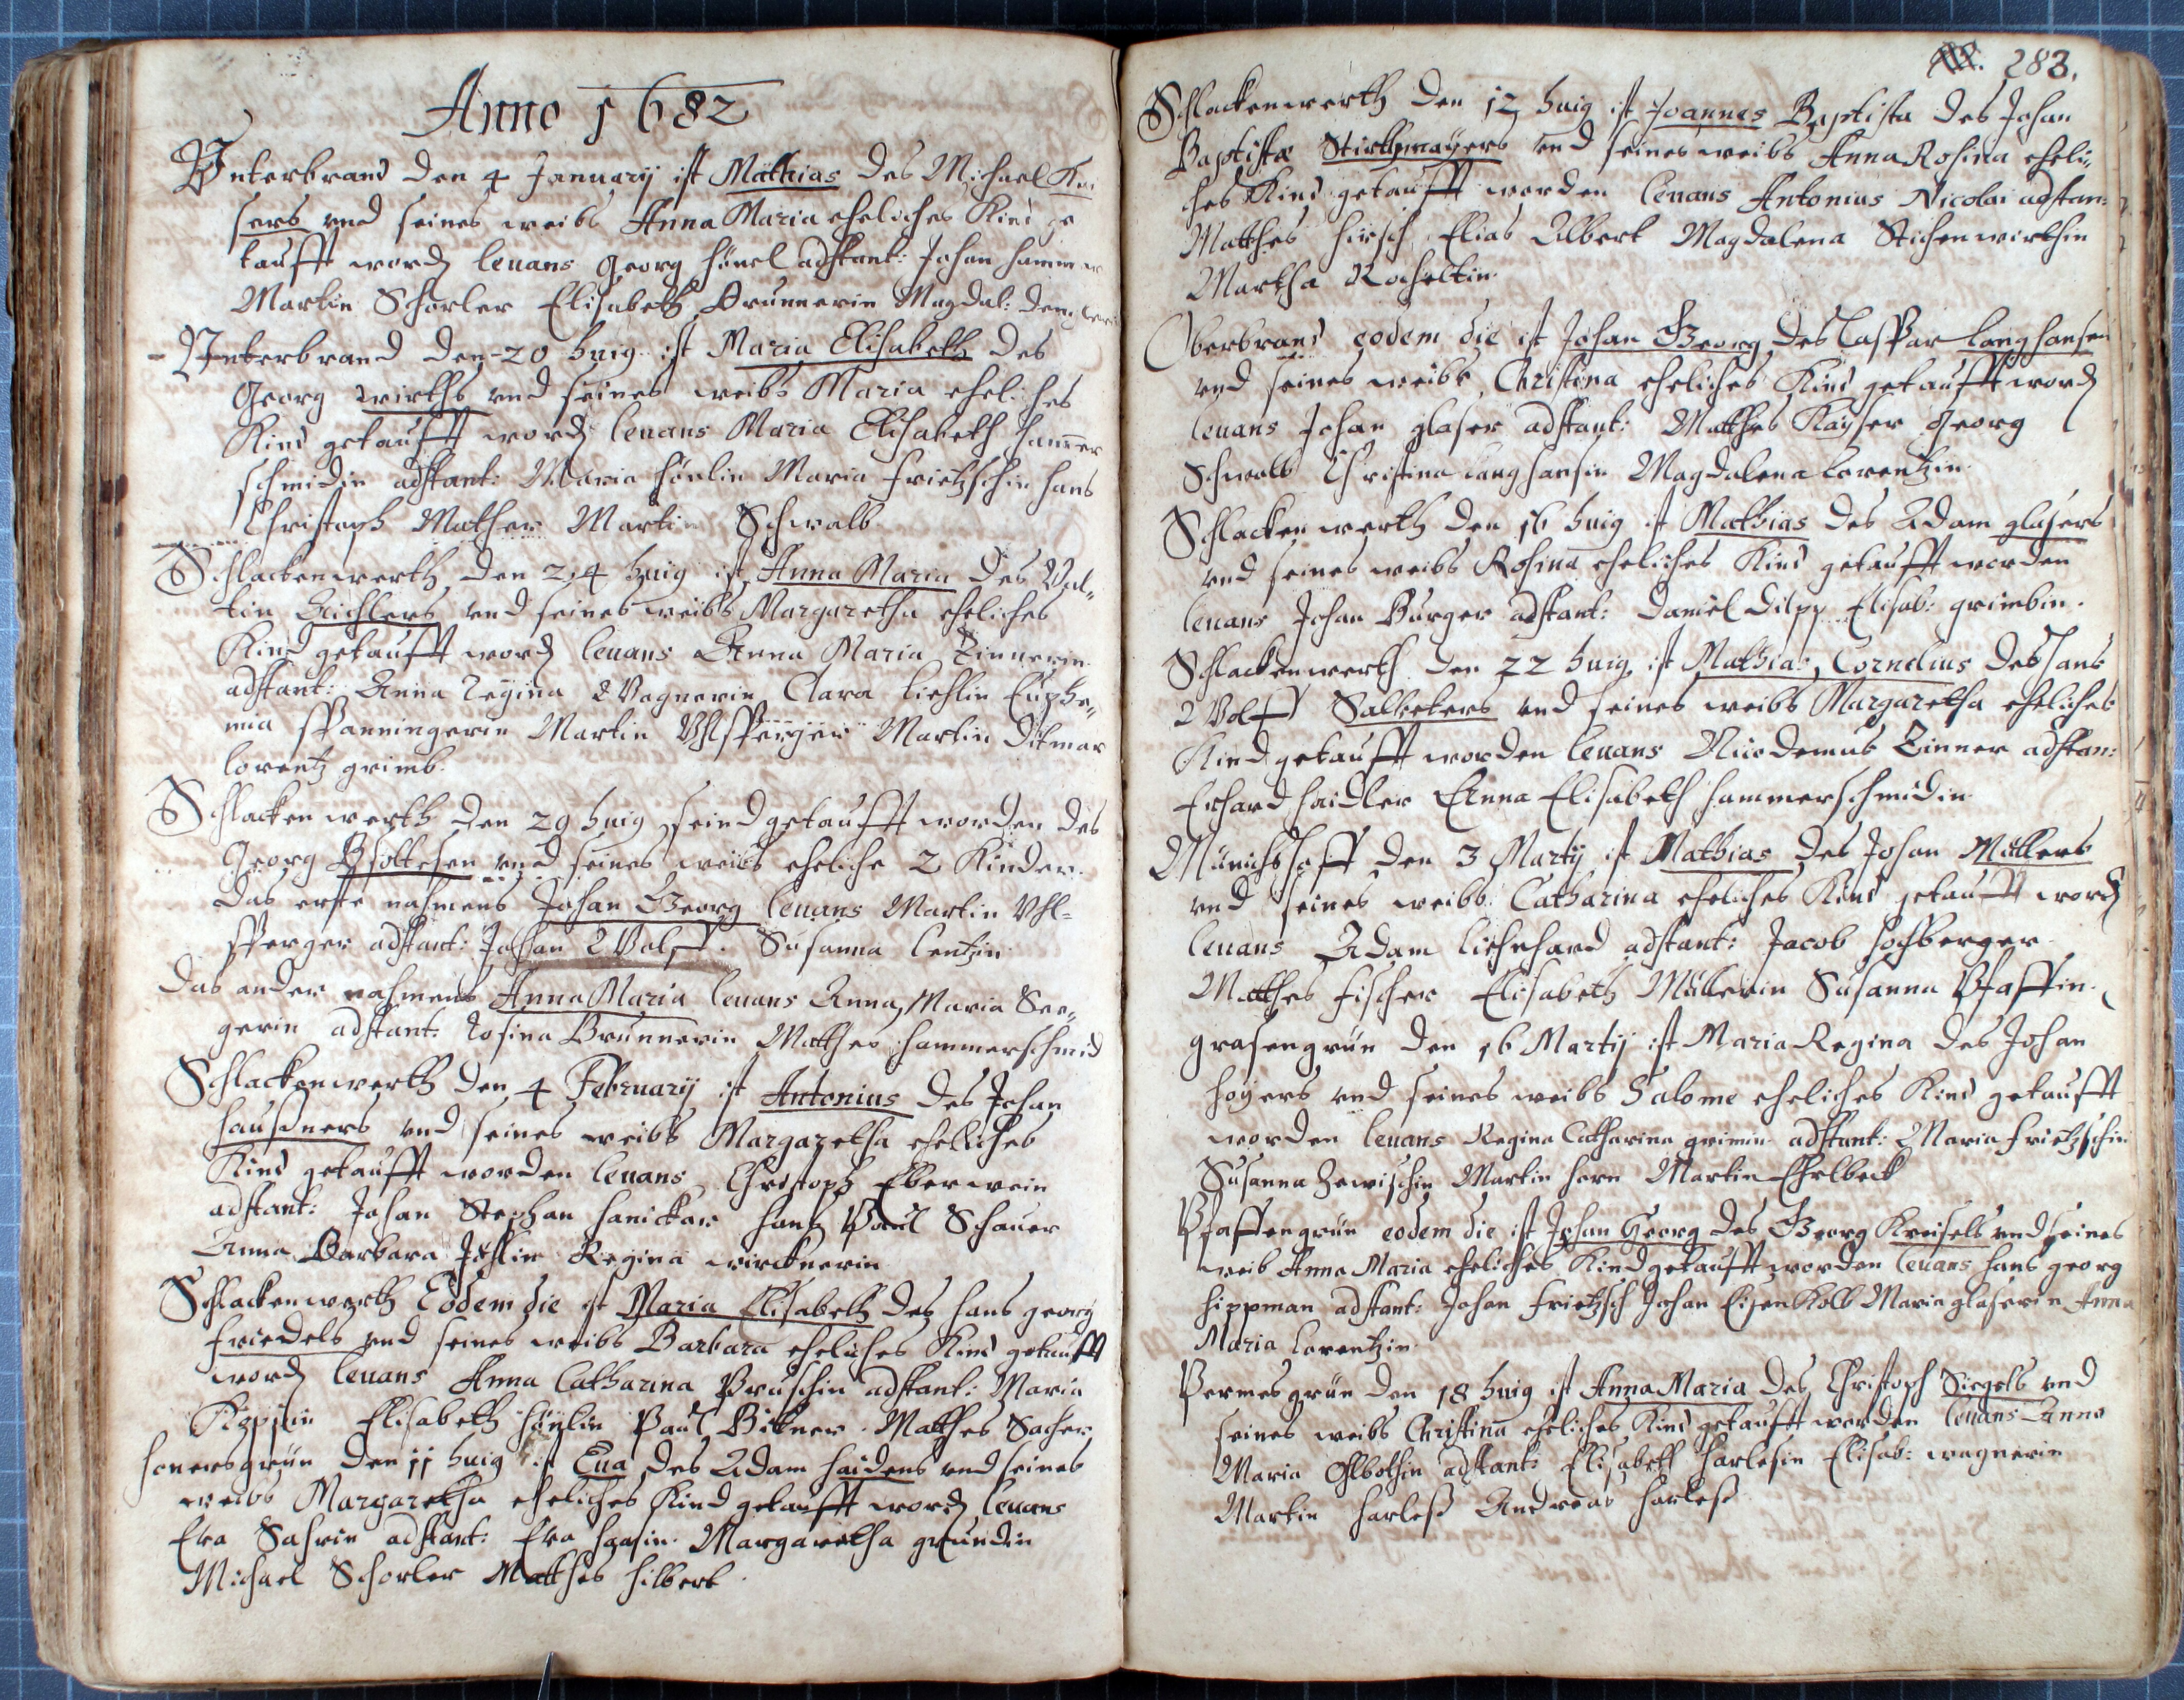 Anno 1682
Vnterbrand den 4 January ist Mathias des Michael Kai
sers vnd seines weibs Anna Maria eheliches Kind ge
taufft word levans Georg hönel adstant: Johan hammer
Martin Schorler Elisabeth Brunnerin Magdal:
Vnterbrand den 20 huig ist Maria Elisabeth des
Georg wirths vnd seines weibs Maria eheliches
Kind getaufft word levans Maria Elisabeth hammer
schmidin adstant: Maria hönlin Maria frietzschin hans
Christoph Mather Martin Schwalb
Schlackenwerth den 24 huig ist Anna Maria des Val„
tin Eichlers vnd seines weibs Margaretha eheliches
Kind getaufft word levans Anna Maria Zinnerin
adstant: Anna Regina Wagnerin Clara liehlin Euphe„
mia spanningerin Martin Vhlsperger Martin Ditmar
lorentz grimb.
Schlackenwerth den 29 huig seind getaufft worden des
Georg vnd seines weibs eheliche 2 Kinder
das erste nahmens Johan Georg levans Martin Vhl-
sperger adstant: Johan Wolff. Susanna lentzin
das ander nahmens Anna Maria levans Anna Maria See„
gerin adstant: Rosina Brunnerin Mathes hammerschmid
Schlackenwerth den 4 February ist Antonius des Johan
haußners vnd seines weibs Margaretha eheliches
Kind getaufft worden levans Christoph Eberwein
adstant: Johan Stephan hanickar hans Paul Schauer
Anna Barbara Regina wircknerin
Schlackenwerth Eodem die ist Maria Elisabeth des hans georg
friedels vnd seines weibs Barbara eheliches Kind getaufft
word levans Anna Catharina Pruschin adstant: Maria
Elisabeth hönlin Paul Bitner. Mathes Sacher
honersgrün den 11 huig ist Eua des Adam haidens vnd seines
weibs Margaretha eheliches Kind getaufft word levans
Eva Sahrin adstant: Eva haasin. Margaretha grundin
Michael Schorler Matthes hilbert.
283.
Schlackenwerth den 12 huig ist Joannes Baptista des Johan
Baptistæ Stirthmayers vnd seines weibs Anna Rosina eheli„
ches Kind getaufft worden levans Antonius Nicolai adstan:
Matthes hirsch Elias Albert Magdalena Stichenwirthin
Martha Rocheltin.
Oberbrand eodem die ist Johan Georg des Caspar langhansen
vnd seines weibs Christina eheliches Kind getaufft word
levans Johan glaser adstant: Matthes Kayser Georg
Schwalb Christina langhansin Magdalena lorentzin.
Schlackenwerth den 16 huig ist Mathias des Adam glasers
vnd seines weibs Rosina eheliches Kind getaufft worden
levans Johan Burger adstant: Daniel Dilpp Elisab: grimbin.
Schlackenwerth den 22 huig ist Mathias Cornelius des hans
Wolff Salketers vnd seines weibs Margaretha eheliches
Kind getaufft worden levans Nicodemus Zinner adstan:
Erhard haidler Anna Elisabeth hammerschmidin
Münichshoff den 3 Martij ist Mathias des Johan Müllers
vnd seines weibs Catharina eheliches Kind getaufft word
levans Adam lichnhard adstant: Jacob hochberger
Matthes fischer Elisabeth Müllerin Susanna Pfaffin.
grasengrün den 16 Martij ist Maria Regina des Johan
hoyers vnd seines weibs Salome eheliches Kind getaufft
worden levans Regina Catharina grimin adstant: Maria frietzschin
Susanna Martin horn Martin Ehelbeck
Pfaffengrün eodem die ist Johan Georg des Georg Kreisels vnd seines
weib Anna Maria eheliches Kind getaufft worden levans hans georg
hippman adstant: Johan frietzsch Johan Eisenkolb Maria glaserin Anna
Maria lorentzin.
Permesgrün den 18 huig ist Anna Maria des Christoph Siegels vnd
seines weibs Christina eheliches Kind getaufft worden levans Anna
Maria adstant: Elisabeth harlesin Elisab: wagnerin
Martin harleß Andreas harleß